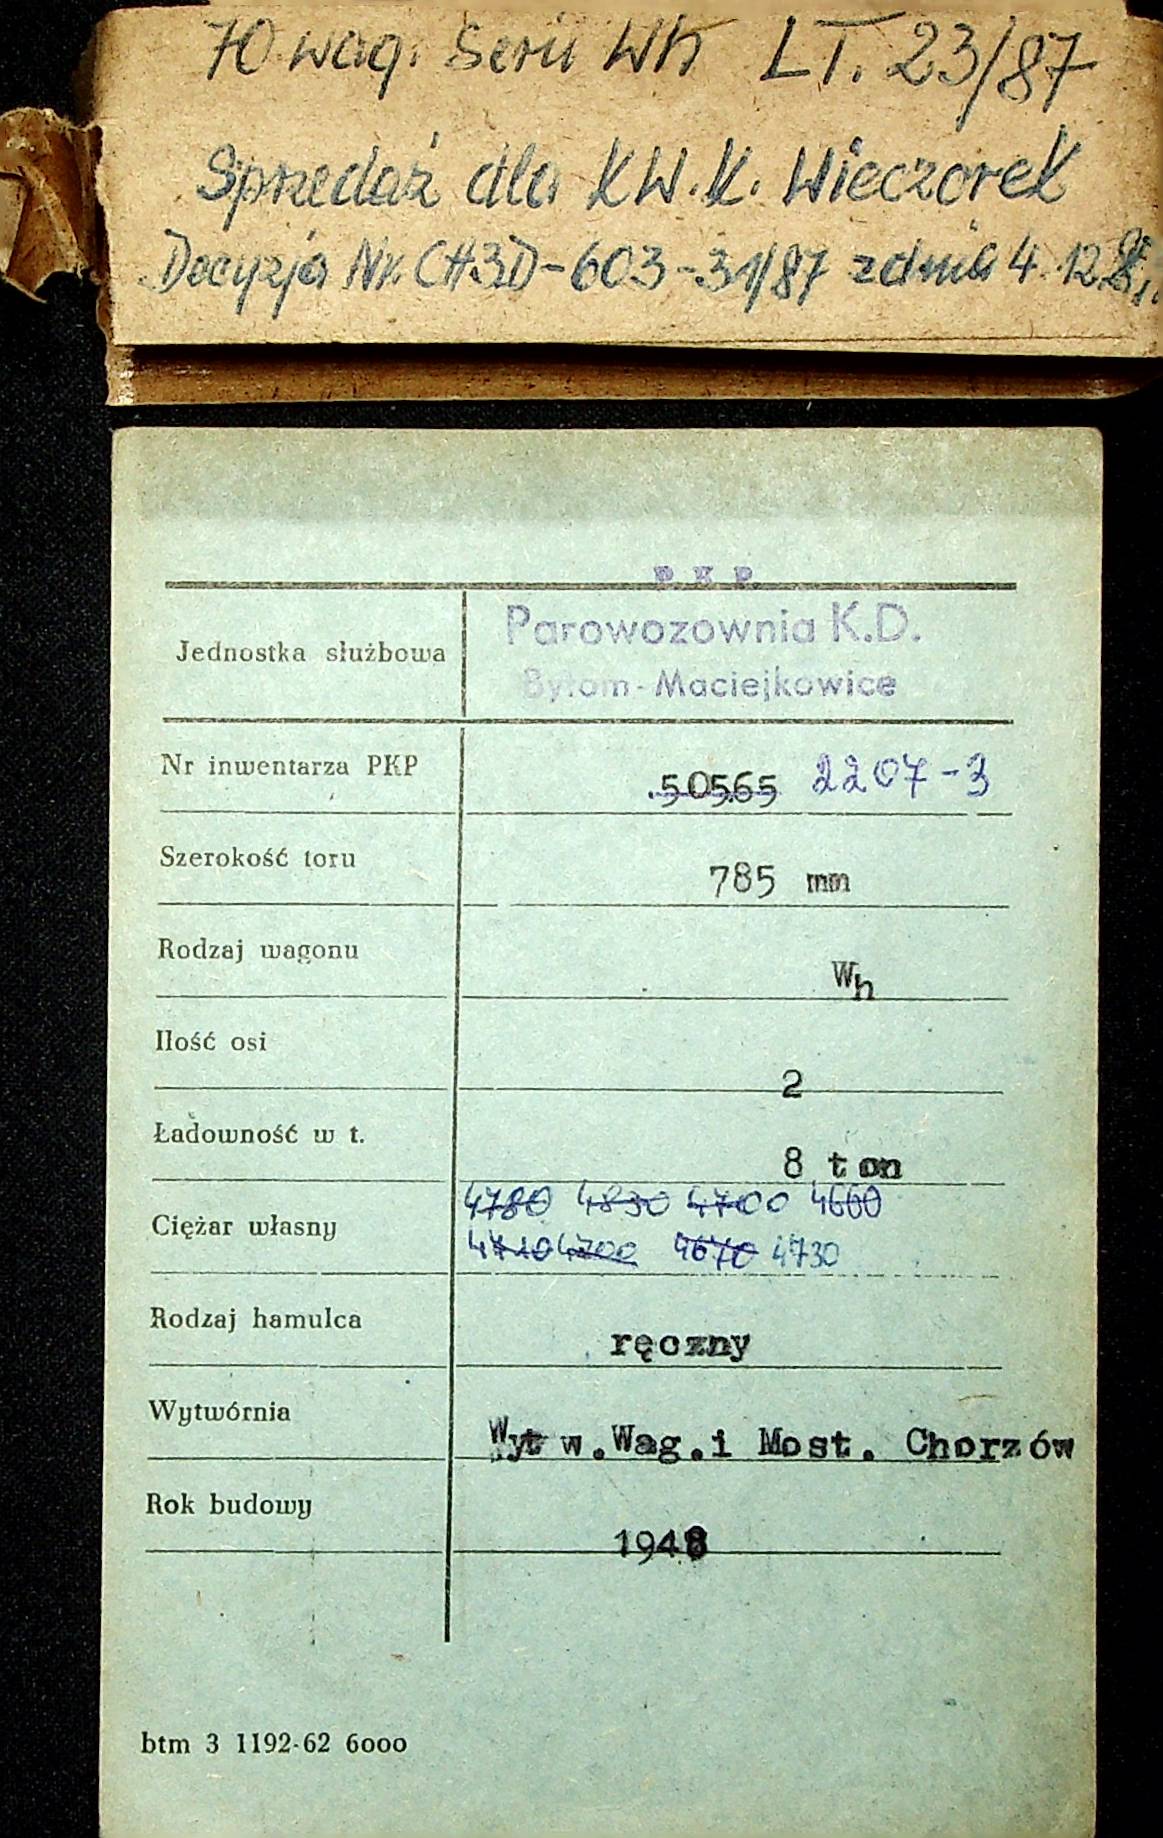 70 wag. Serii Wh LT. 23/87
Sprzedaż dla KW.K. Wieczorek
Decyzja Nr. CH3D-603-31/87 z dnia 4.12.
P. K. P.
Parowozownia K.D.
Jednostka służbowa
Bytom-Maciejkowice
Nr inwentarza PKP 50565 2207-3
Szerokość toru 785 mm
Rodzaj wagonu Wh
Ilość osi 2
Ładowność w t. 8 ton
4780 4830 4700 4660
Ciężar własny
4710 4700 4670 4730
Rodzaj hamulca ręczny
Wytwórnia Wytw.Wag.i Most. Chorzów
Rok budowy 1948
btm 3 1192-62 6000